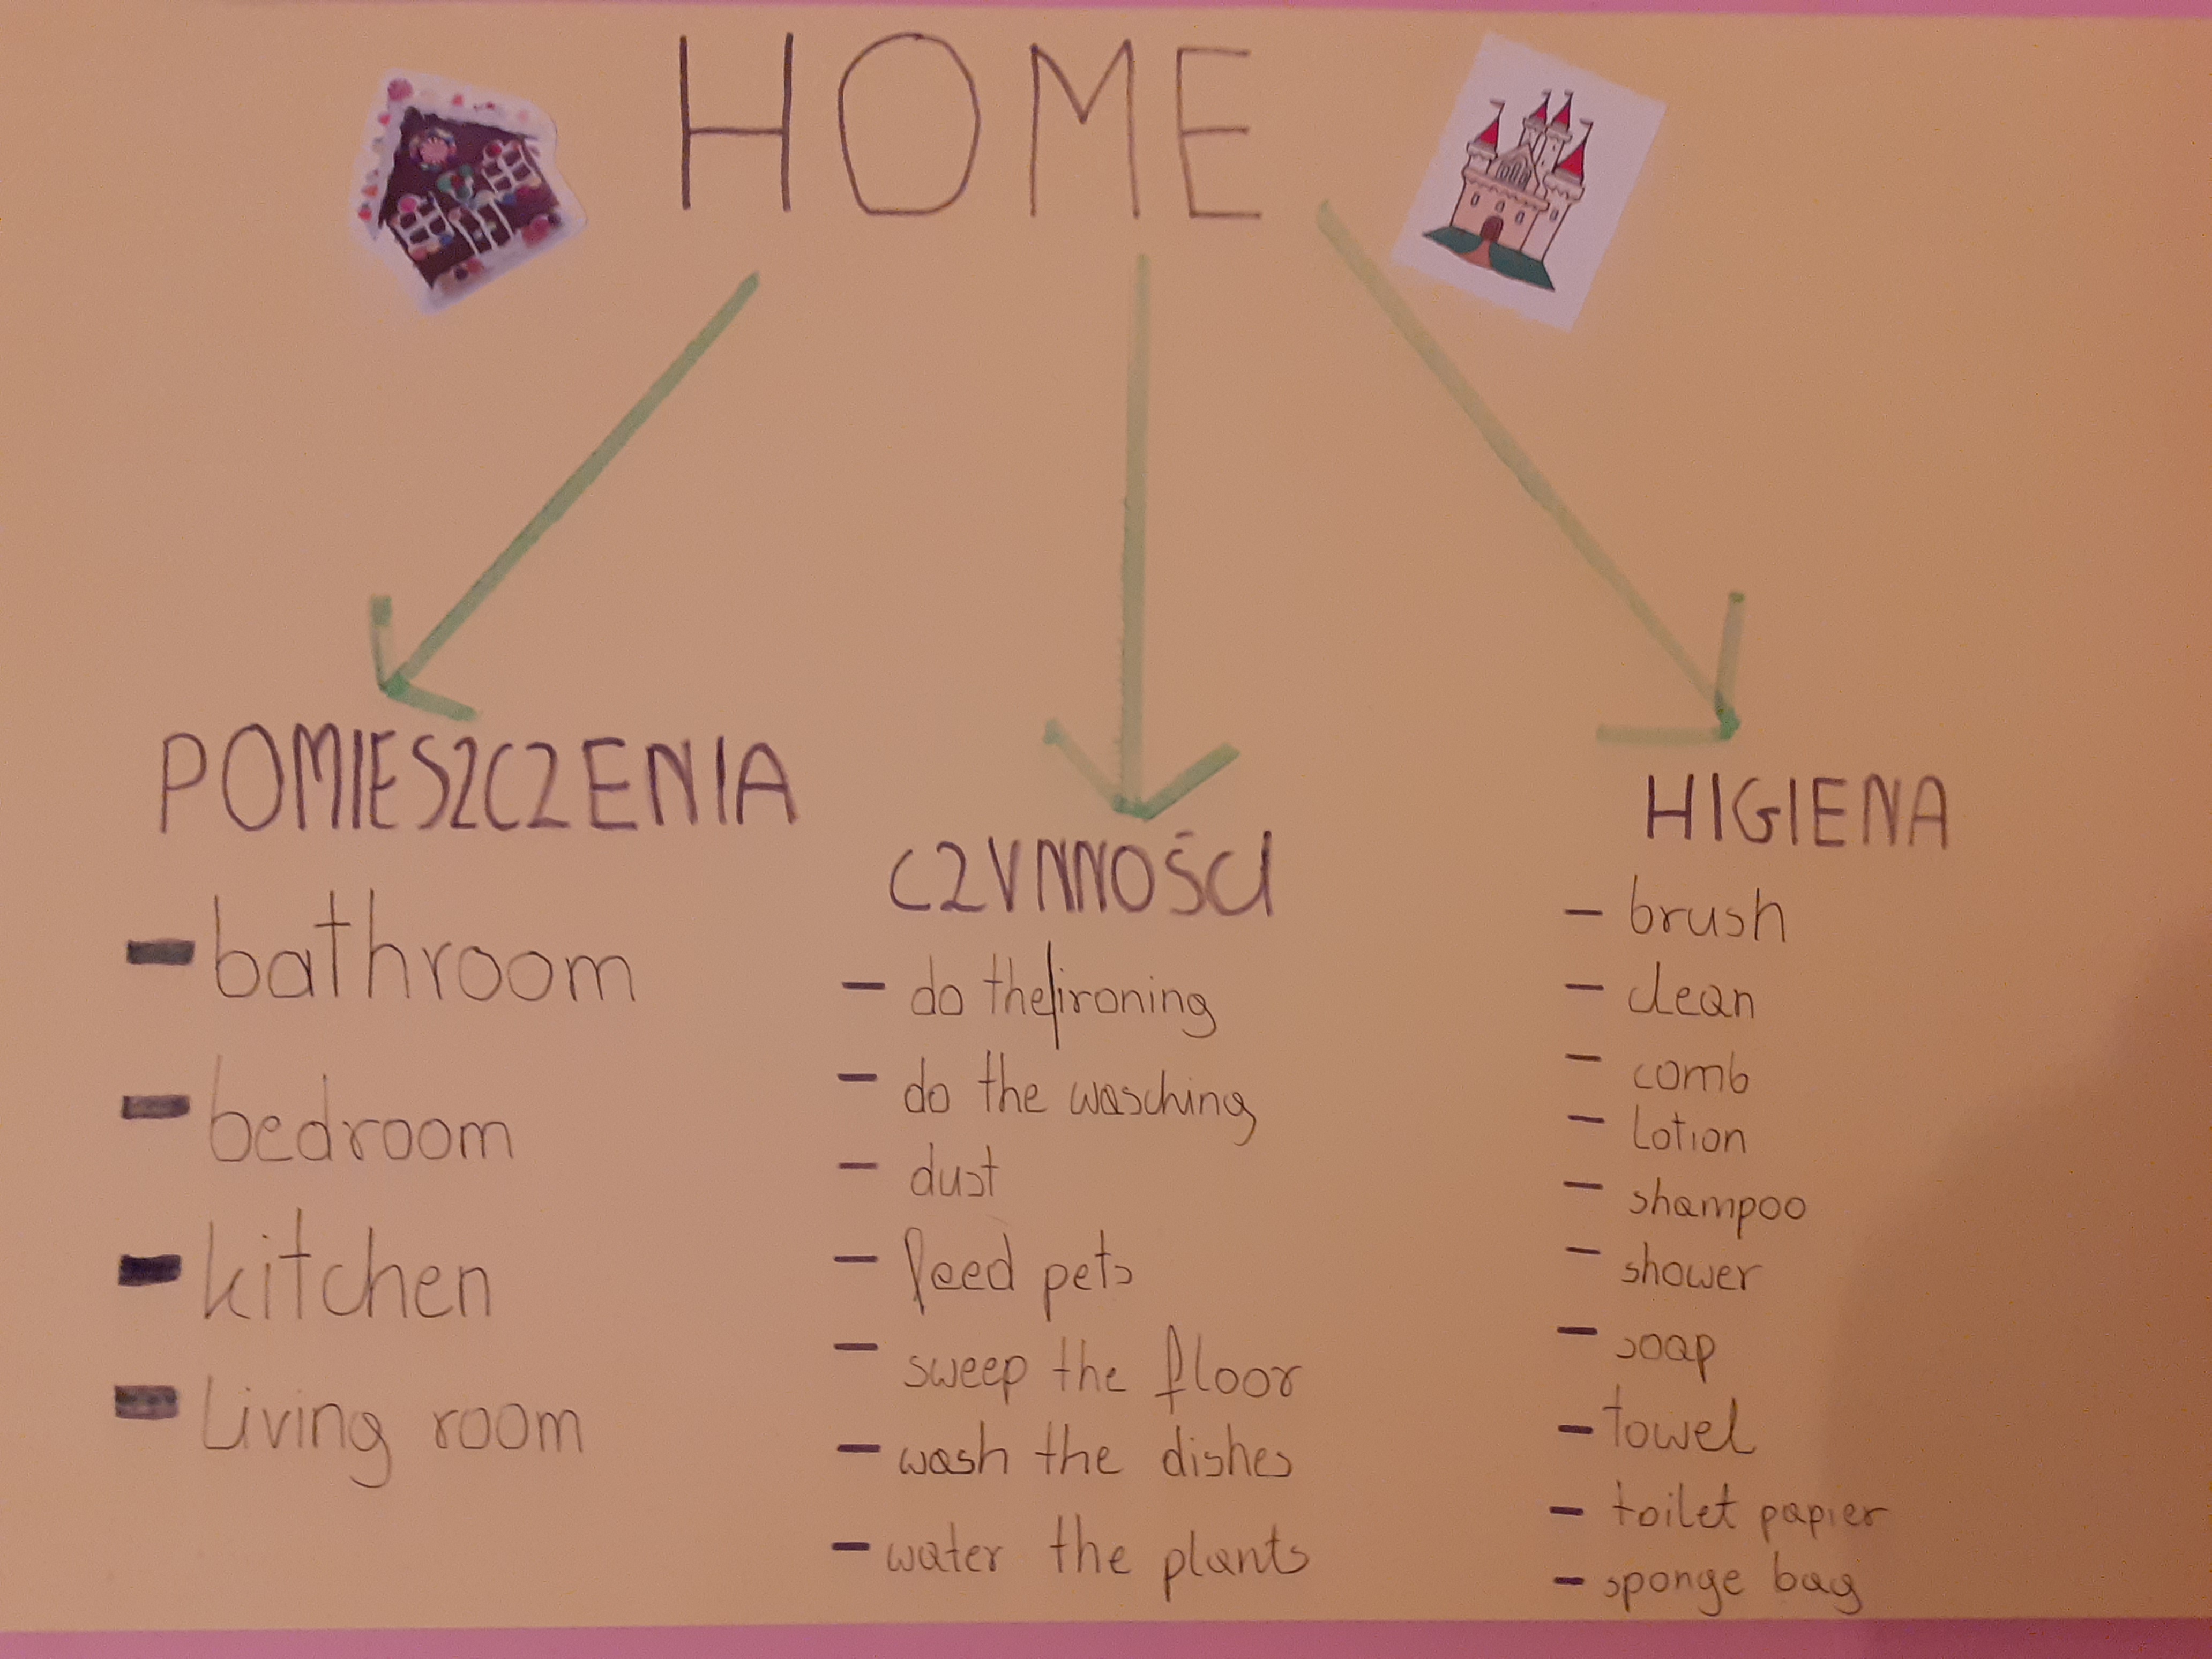 HOME
POMIESZCZENIA
- bathroom
- bedroom
- kitchen
- living room
CZYNNOŚCI
- do the/ironing
- do the wasching
- dust
- feed pets
- sweep the floor
- wash the dishes
- water the plants
HIGIENA
- brush
- clean
- comb
- lotion
- shampoo
- shower
- soap
- towel
- toilet papier
- sponge bag